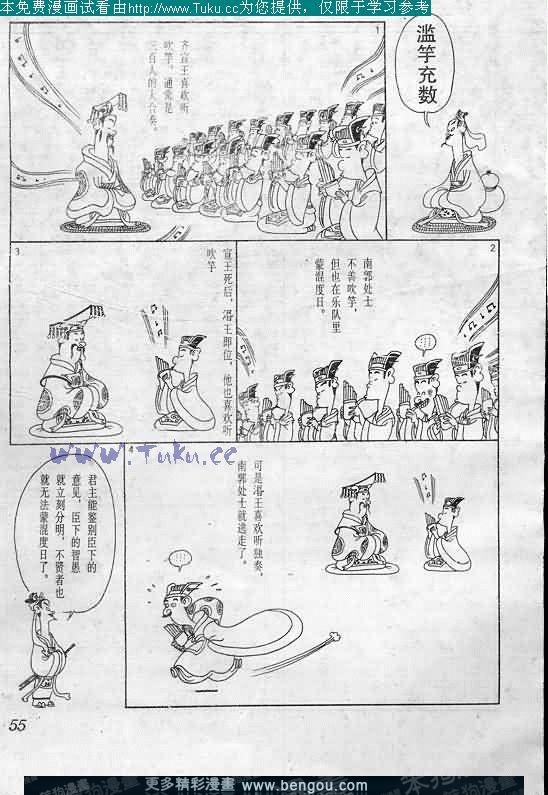 本免费漫画试看由http://www.Tuku.cc为您提供，仅限于学习参考
滥竽充数
1
齐宣王喜欢听
吹竽，通常是
三百人的大合奏。
2
南郭处士
不善吹竽，
但也在乐队里
蒙混度日。
3
宣王死后，湣王即位，他也喜欢听
吹竽
www.Tuku.cc
4
可是湣王喜欢听独奏，
南郭处士就逃走了。
君主能鉴别臣下的
意见，臣下的智愚
就立刻分明，不贤者也
就无法蒙混度日了。
55
更多精彩漫畫 www.bengou.com